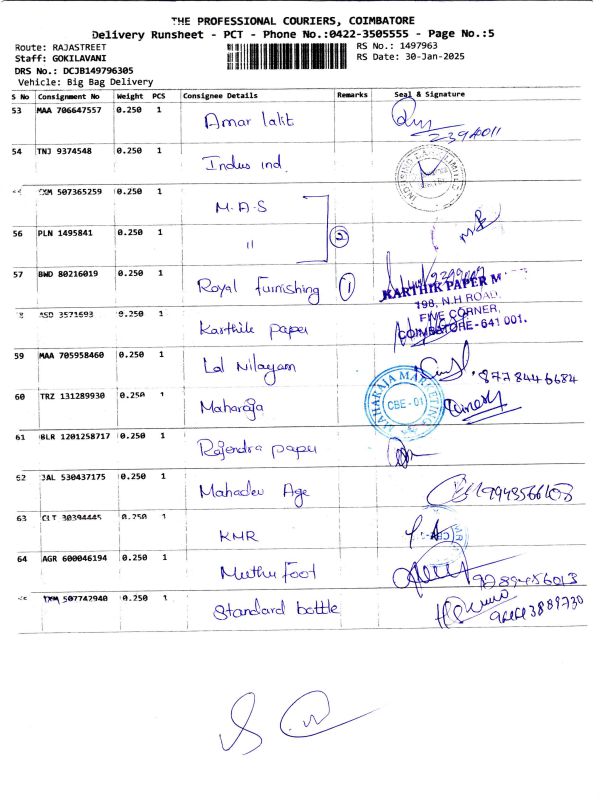 THE PROFESSIONAL COURIERS, COIMBATORE
Delivery Runsheet - PCT - Phone No.:0422-3505555 - Page No.:5
Route: RAJASTREET RS No.: 1497963
Staff: GOKILAVANI RS Date: 30-Jan-2025
DRS No.: DCJB149796305
Vehicle: Big Bag Delivery
S No Consignment No Weight PCS Consignee Details Remarks Seal & Signature
53 MAA 706647557 0.250 1 Amar lalit
54 TNJ 9374548 0.250 1 Indus ind. INDUSIND BANK LIMITED
TXM 507365259 0.250 1 M.A.S
56 PLN 1495841 0.250 1 " 2
57 BWD 80216019 0.250 1 Royal furnishing 1
KARTHIK PAPER M
198, N.H ROAD,
FIVE CORNER,
COIMBATORE-641 001.
ASD 3571693 0.250 1 Karthik paper
59 MAA 705958460 0.250 1 Lal Nilayam 8778446684
60 TRZ 131289930 0.250 1 Maharaja MAHARAJA MARKETING CBE-01 Dinesh
61 BLR 1201258717 0.250 1 Rajendra paper
62 JAL 530437175 0.250 1 Mahadev Age 9943566108
63 CLT 30394445 0.250 1 KMR
64 AGR 600046194 0.250 1 Muthu Foot 9789456013
TXM 507742940 0.250 1 Standard bottle